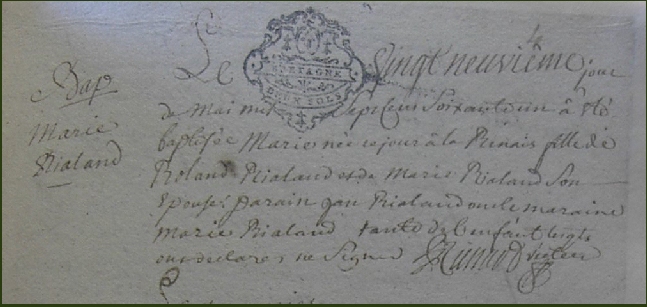 Le Vingt neuvième jour
Bap
Marie
Rialand
BRETAGNE
DEUX SOLS
de Mai mil Sept cens Soixante un à été
baptisée Marie née ce jour à la fille de
Roland Rialand et de Marie Rialand Son
Epouse; parain jan Rialand oncle maraine
Marie Rialand tante de l'enfant lesqls
ont declare ne Signer Recteur